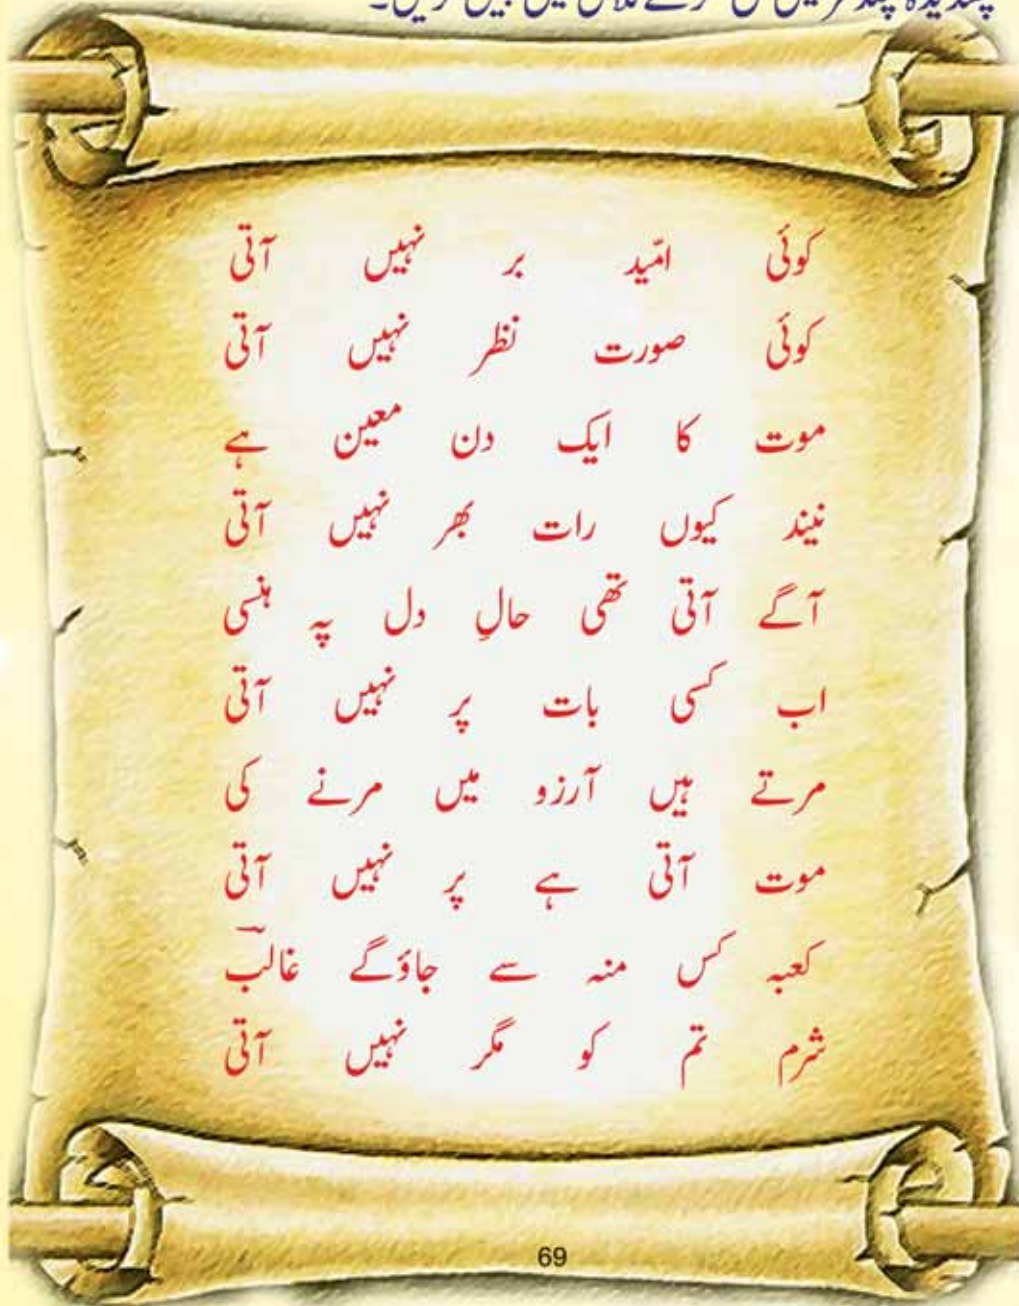 پسندیدہ چند غزلیں
کوئی امّید بر نہیں آتی
کوئی صورت نظر نہیں آتی
موت کا ایک دن معین ہے
نیند کیوں رات بھر نہیں آتی
آگے آتی تھی حالِ دل پہ ہنسی
اب کسی بات پر نہیں آتی
مرتے ہیں آرزو میں مرنے کی
موت آتی ہے پر نہیں آتی
کعبہ کس منہ سے جاؤگے غالبؔ
شرم تم کو مگر نہیں آتی
69